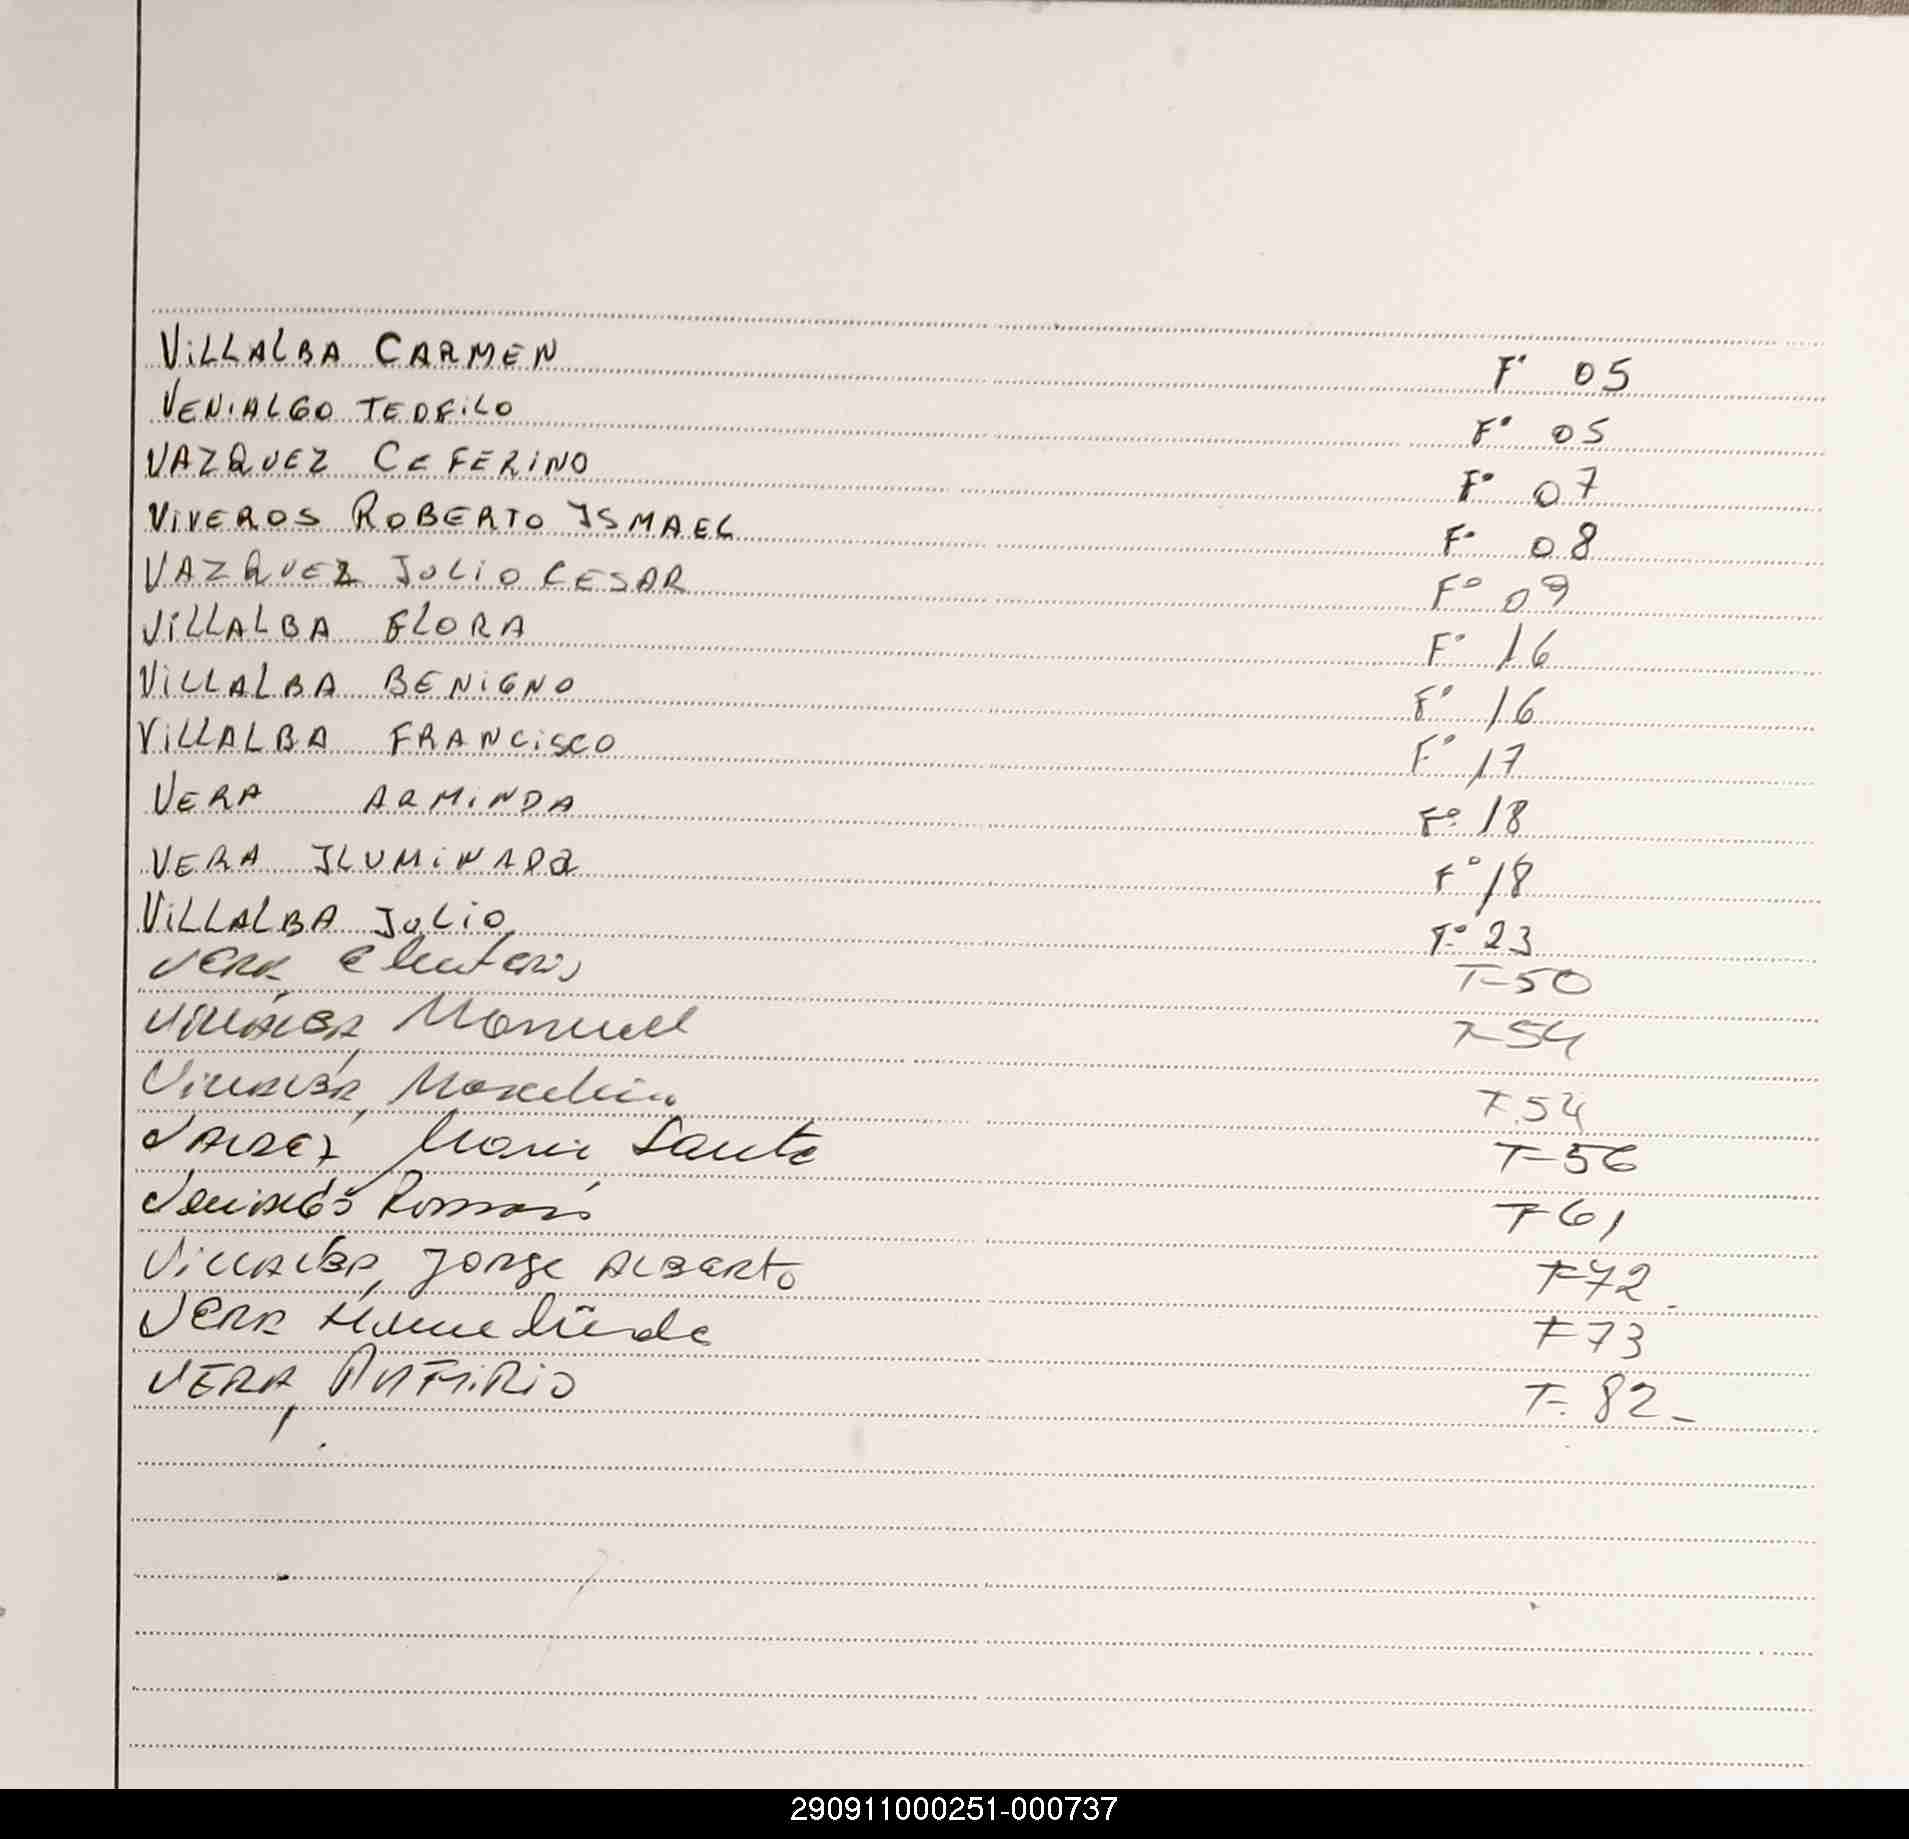 VILLALBA CARMEN F° 05
VENIALGO TEOFILO F° 05
VAZQUEZ CEFERINO F° 07
VIVEROS ROBERTO ISMAEL F° 08
VAZQUEZ JULIO CESAR F° 09
VILLALBA FLORA F° 16
VILLALBA BENIGNO F° 16
VILLALBA FRANCISCO F° 17
VERA ARMINDA F° 18
VERA ILUMINADA F° 18
VILLALBA JULIO F° 23
VERA Eleuterio F-50
VILLALBA, Manuel F-54
VILLALBA, Marcelina F-54
VALDEZ, Maria Sante F-56
VENIALGO Roman F-61
VILLALBA, Jorge ALBERTO F-72.
VERA F-73
VERA, PORFIRIO F-82-
290911000251-000737